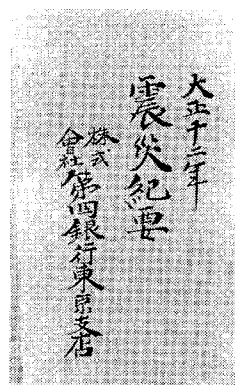 大正十二年
震災紀要
株式會社第四銀行東京支店